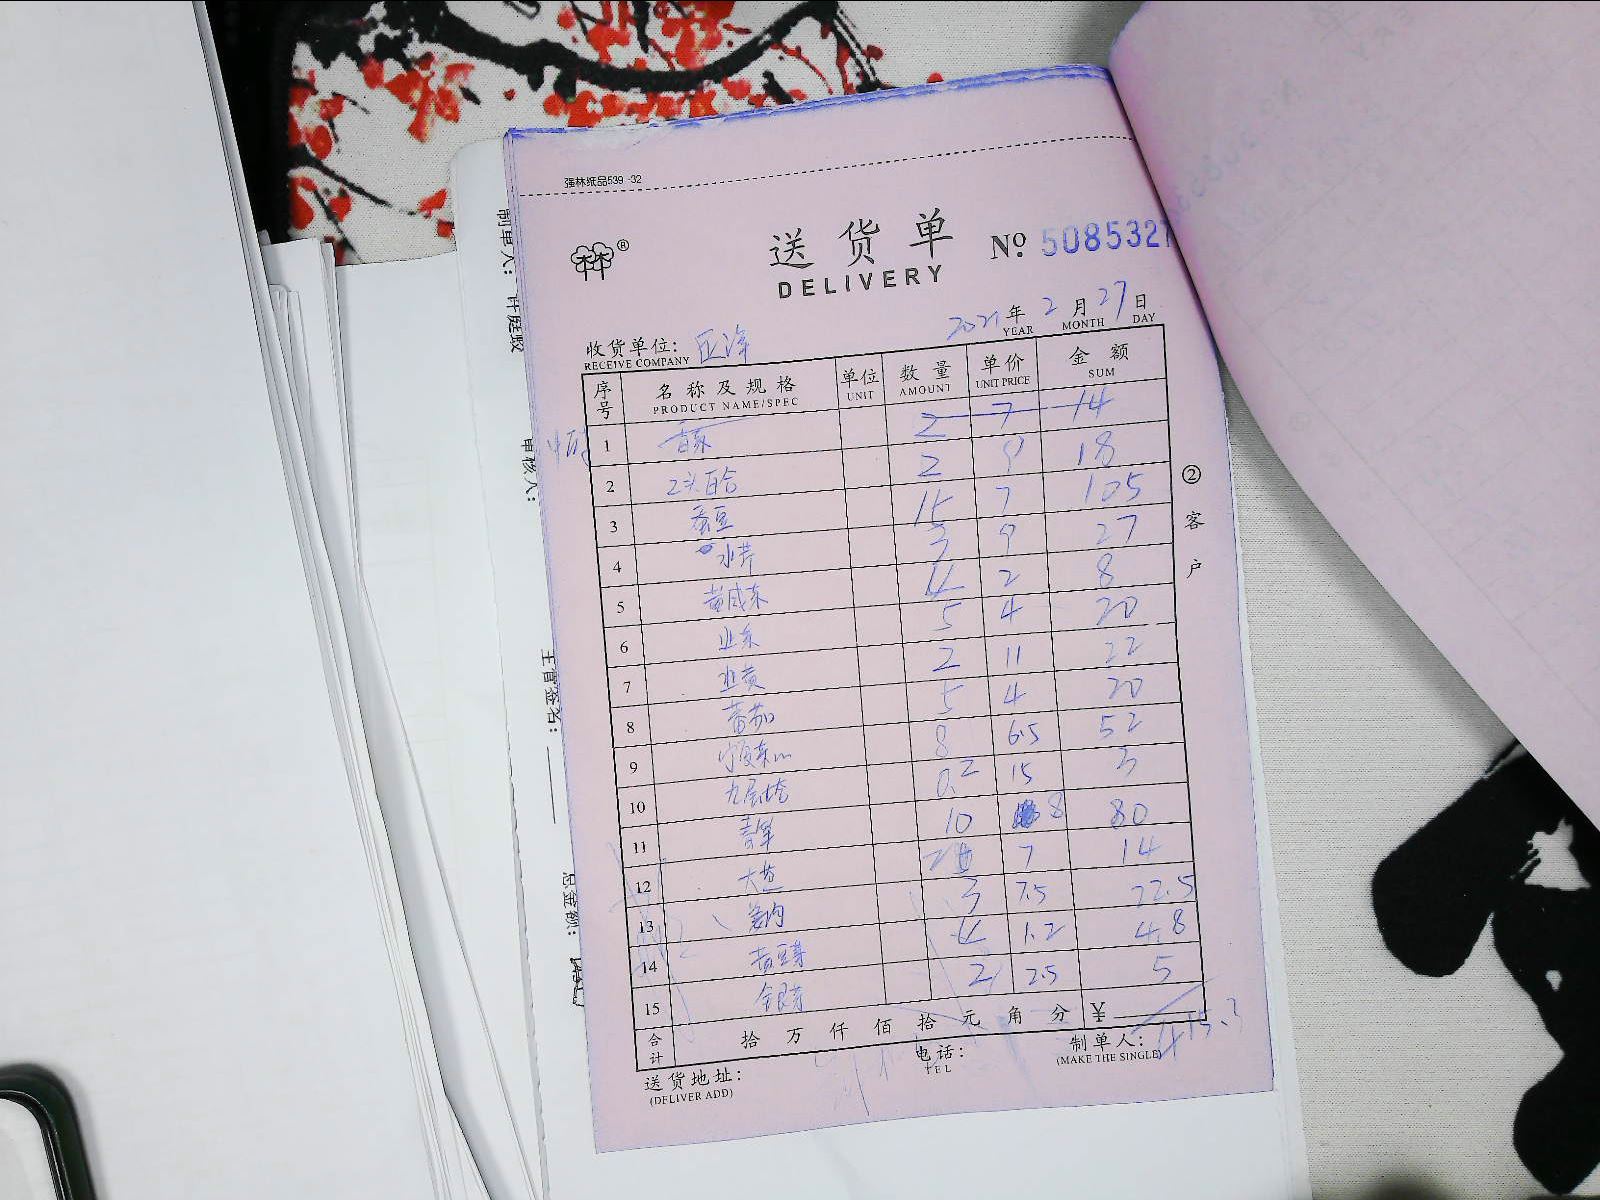 强林纸品539 -32
送货单
DELIVERY
№ 5085321
2021年 2月 27日
YEAR MONTH DAY
收货单位:
RECEIVE COMPANY
序号 名称及规格 单位 数量 单价 金额
PRODUCT NAME/SPEC UNIT AMOUNT UNIT PRICE SUM
1 2 7 14
2 2头百合 2 9 18
3 蚕豆 15 7 105
4 水芹 3 9 27
5 4 2 8
6 5 4 20
7 韭黄 2 11 22
8 番茄 5 4 20
9 8 6.5 52
10 九层塔 0.2 15 3
11 10 8 80
12 大葱 2 7 14
13 3 7.5 22.5
14 黄豆芽 4 1.2 4.8
15 2 2.5 5
合计 拾 万 仟 佰 拾 元 角 分 ¥
415.3
送货地址:
(DELIVER ADD)
电话:
TEL
制单人:
(MAKE THE SINGLE)
②客户
制单人:
审核人:
主管签名:
总金额: